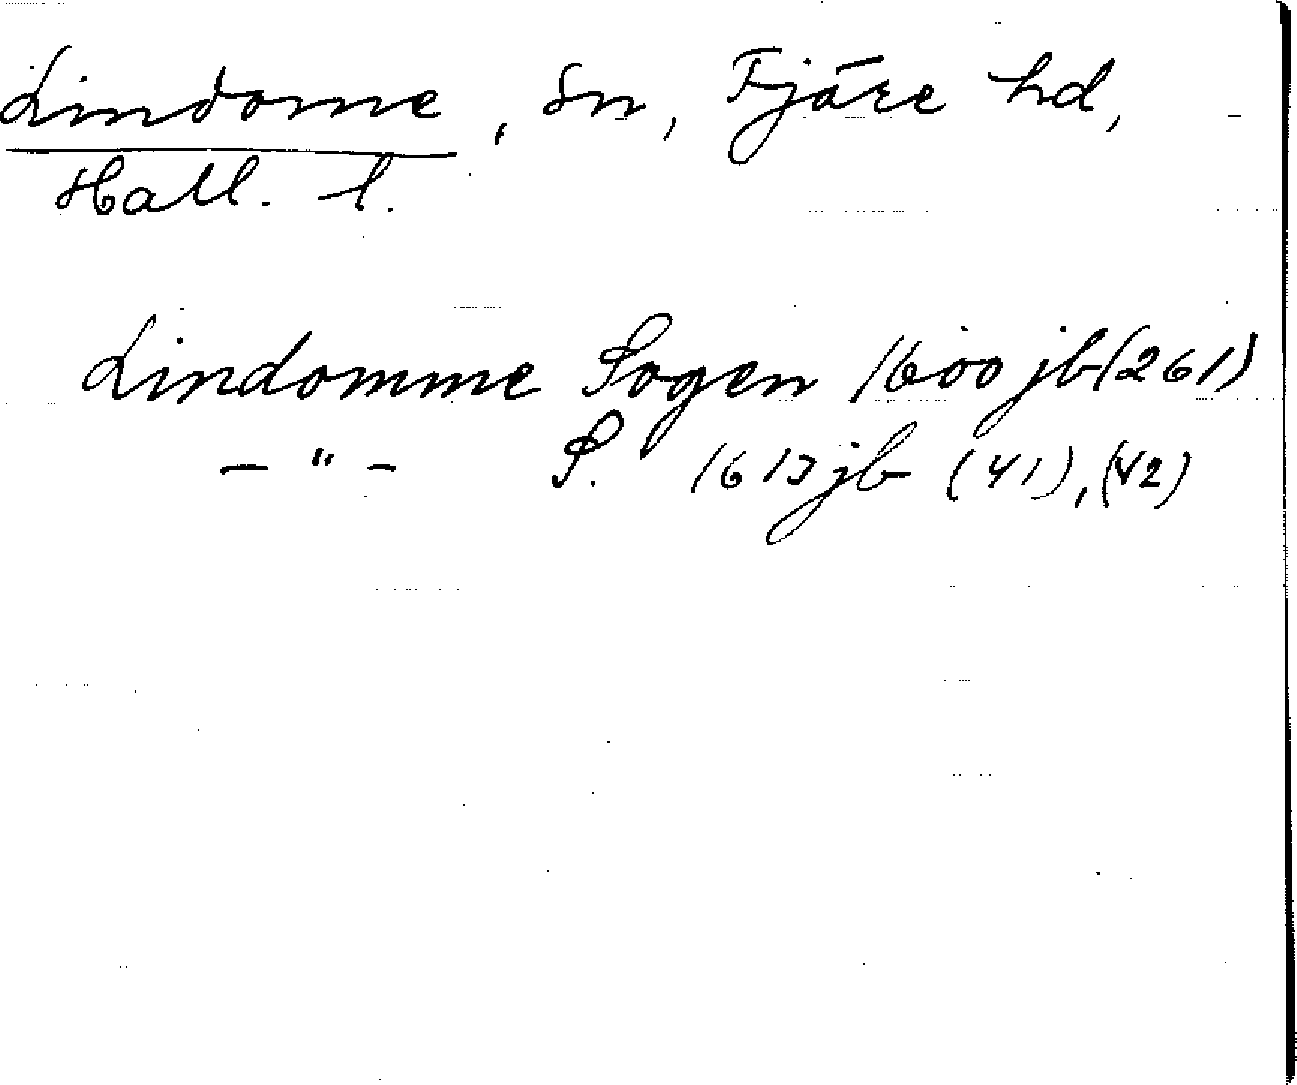 Lindome, sn, Fjäre hd,
Hall. l.
Lindomme Sogen 1600 jb (261)
— " — S. 1613 jb (41), (42)